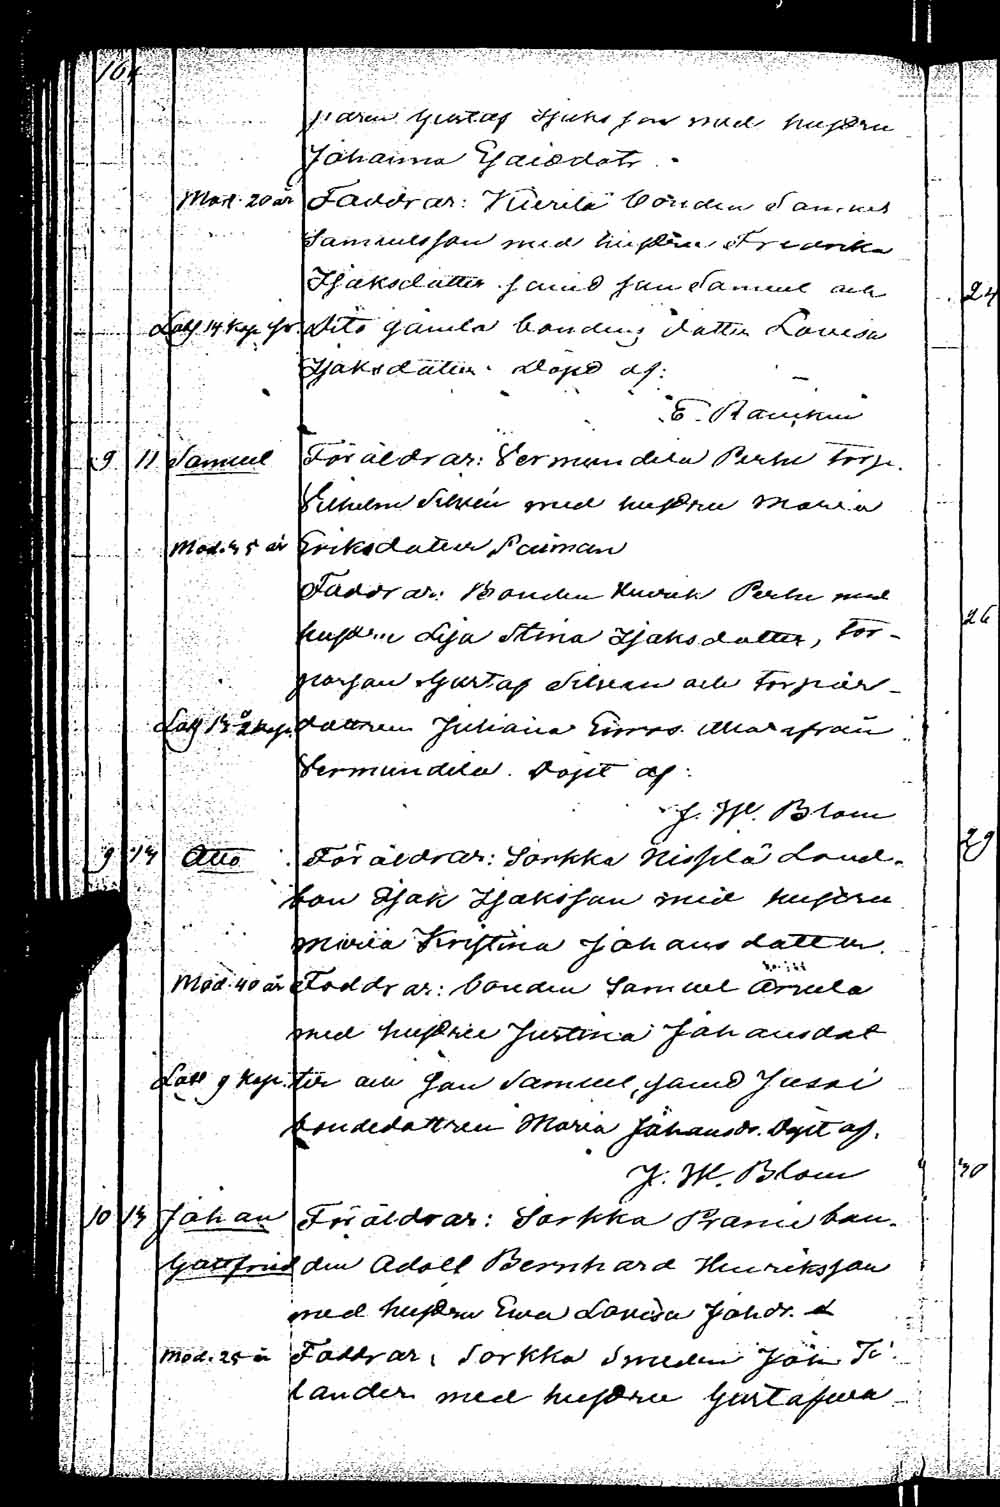 164
paren Gustaf Isaksson med hustru
Johanna Esaiedotr.
Mod. 20 år Faddrar: Kierilä bonden Samuel
Samuelsson med hustru Fredrika
Isaksdotter samt son Samuel och
24
Dito gamla bondens dotter Lovisa
Isaksdotter. Döpt af:
9 11 Samuel Föräldrar: Vermundila Perhe torp.
Vilhelm Silvén med hustru Maria
Mod. 35 år Eriksdotter Saiman
Faddrar: Bonden Henrik Perhe med
26
hustru Lisa Stina Isaksdotter, tor-
parson Gustaf Silven och torpar-
dottren Juliana från
Vermundila. Döpt af:
J. W. Blom
29
9 13 Otto Föräldrar: Sorkka Nissilä Land-
bon Isak Isaksson med hustru
Maria Kristina Johansdotter.
Mod. 40 år Faddrar: bonden Samuel Arvela
med hustru Justina Johansdot
Lott 9 Kap. ter och son Samuel, samt Jussi
bondedottren Maria Johansdr. Döpt af.
J. W. Blom
30
10 13 Johan Föräldrar: Sorkka Pranie bon-
Gottfried den Adolf Bernhard Henriksson
med hustru Eva Lovisa Johdr.
Mod. 25 år Faddrar: Sorkka Smeden Joh. Ti-
lander med hustru Gustafva